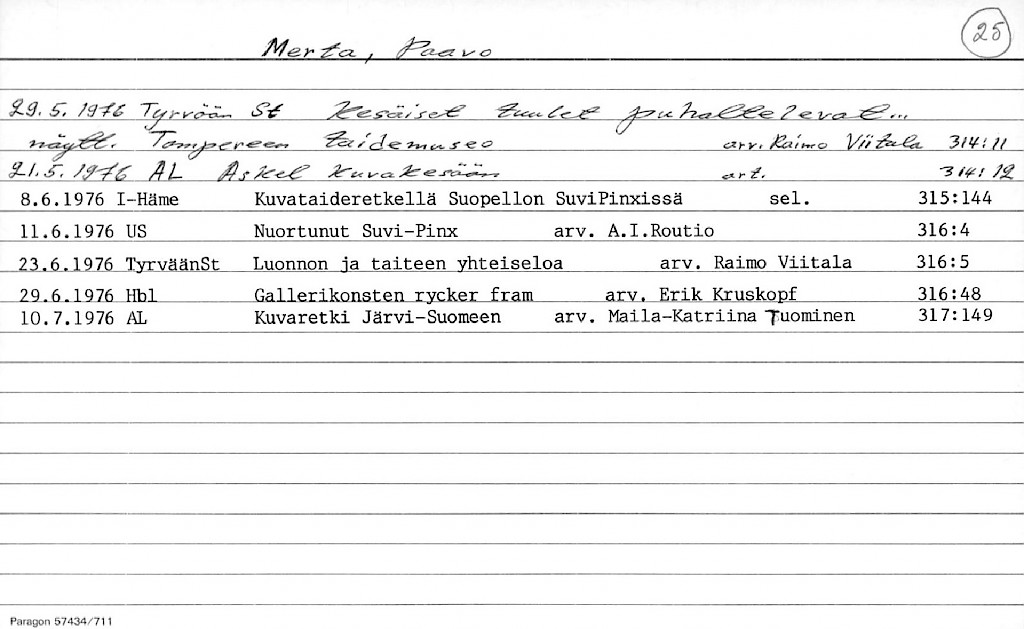 25
Merta, Paavo
29.5.1976 Tyrvään St Kesäiset tuulet puhaltelevat...
näytt. Tampereen taidemuseo arv. Raimo Viitala 314:11
21.5.1976 AL Askel kuvakesään art. 314:12
8.6.1976 I-Häme Kuvataideretkellä Suopellon SuviPinxissä sel. 315:144
11.6.1976 US Nuortunut Suvi-Pinx arv. A.I.Routio 316:4
23.6.1976 TyrväänSt Luonnon ja taiteen yhteiseloa arv. Raimo Viitala 316:5
29.6.1976 Hbl Gallerikonsten rycker fram arv. Erik Kruskopf 316:48
10.7.1976 AL Kuvaretki Järvi-Suomeen arv. Maila-Katriina Tuominen 317:149
Paragon 57434/711